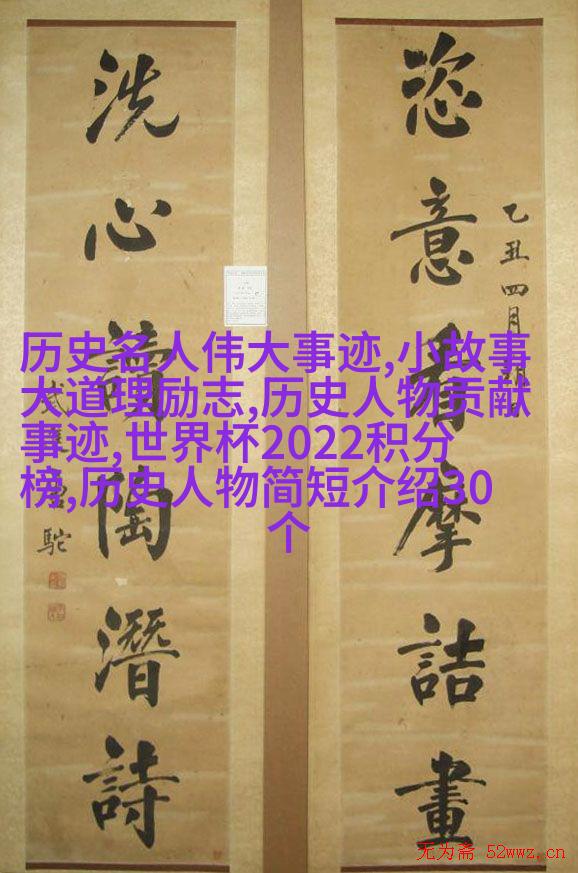 恣意看摩詰畫
乙丑四月
洗心讀陶潛詩
駝
历史名人伟大事迹,小故事
大道理励志,历史人物贡献
事迹,世界杯2022积分
榜,历史人物简短介绍30
个
无为斋 52wwz.cn